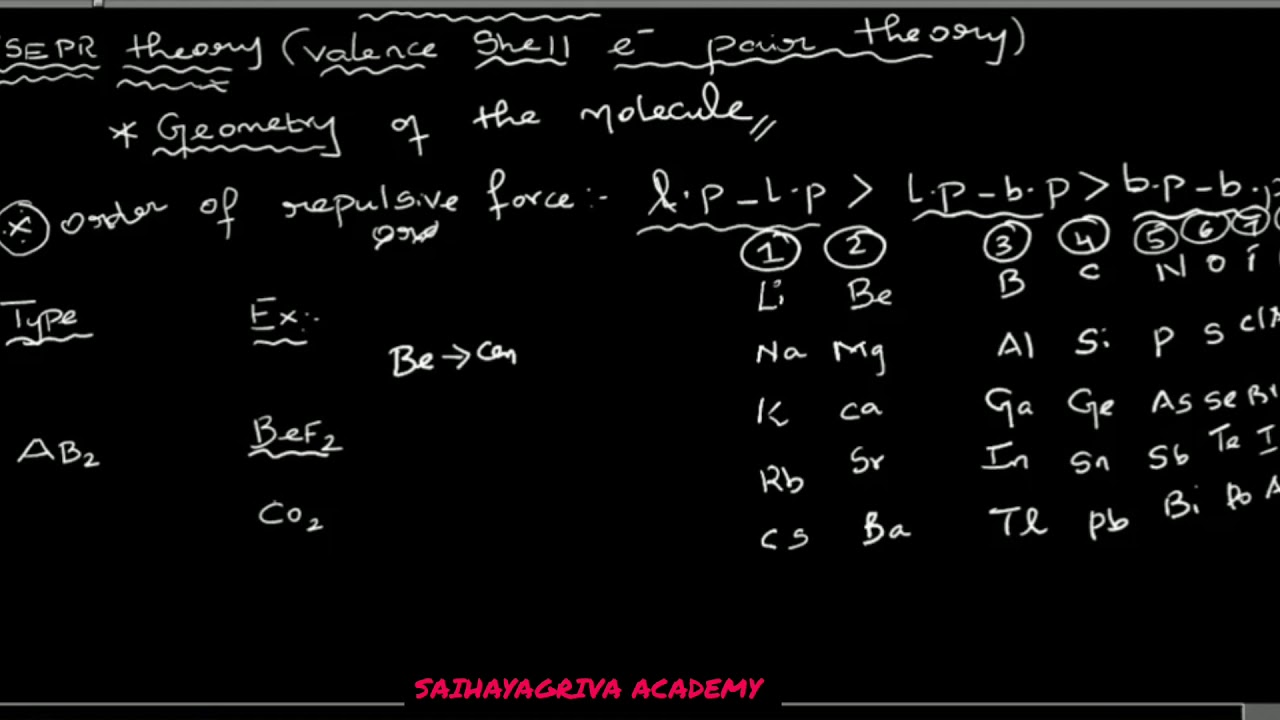 SEPR theory (valence Shell e⁻ pair theory)
* Geometry of the molecule
* order of repulsive force:- l.p - l.p > l.p - b.p > b.p - b.p
1 2 3 4 5 6 7
Li Be B C N O
Type Ex:-
Be → Cen
Na Mg Al Si P S Cl
K Ca Ga Ge As Se Br
AB₂ BeF₂
Rb Sr In Sn Sb Te I
CO₂
Cs Ba Tl Pb Bi Po
SAIHAYAGRIVA ACADEMY